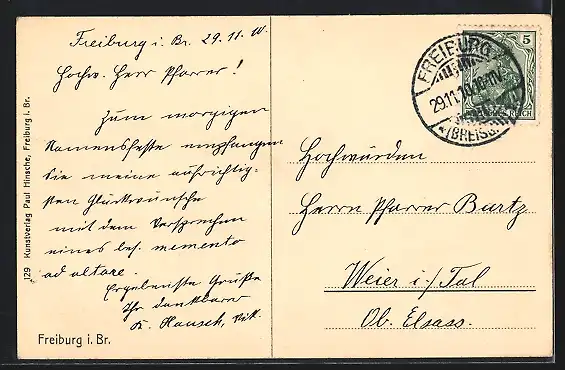 Freiburg i. Br. 29. 11. 10.
Hochw. Herr Pfarrer!
Zum morgigen
Namensfeste empfangen
Sie meine aufrichtig-
sten Glückwünsche
mit dem Versprechen
eines bes. memento
ad altare.
Ergebenste Grüße
Ihr dankbarer
K. Hausch, Vik.
Freiburg i. Br.
129 Kunstverlag Paul Hinsche, Freiburg i. Br.
FREIBURG
29.11.10.
*(BREISG.
5
REICH
Hochwürden
Herrn Pfarrer Burtz
Weier i/Tal
Ob. Elsass.